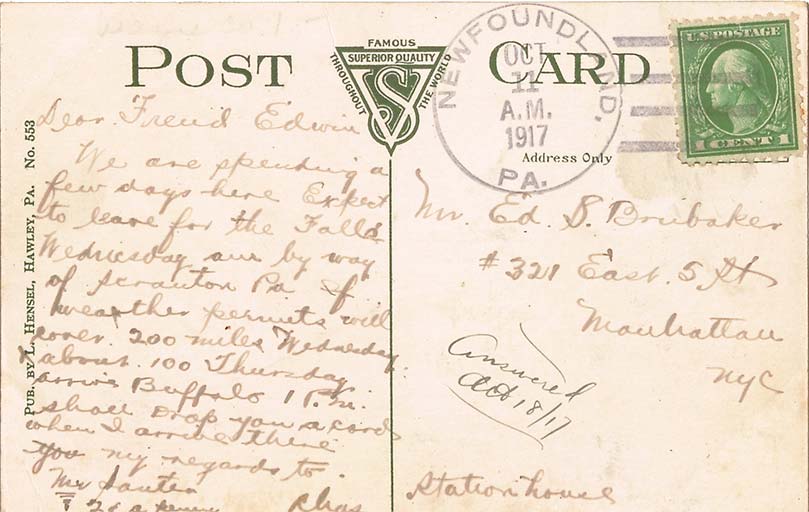 POST CARD
FAMOUS
SUPERIOR QUALITY
THROUGHOUT THE WORLD
VS
NEWFOUNDLAND,
OCT
11
A.M.
1917
PA.
U.S. POSTAGE
1 CENT 1
Address Only
PUB. BY L. HENSEL, HAWLEY, PA. No. 553
Dear Freind Edwin
We are spending a
few days here Expect
to leave for the Falls
Wednesday am by way
of Scranton Pa If
weather permits will
cover 200 miles Wednesday.
about 100 Thursday
arrive Buffalo 1 P.M.
shall Drop you a card
when I arrive there
my regards to
Mr
Chas
Mr. Ed. S. Brubaker
# 321 East. 5 St
Manhattan
NYC
Answered
Oct 18/17
Station house